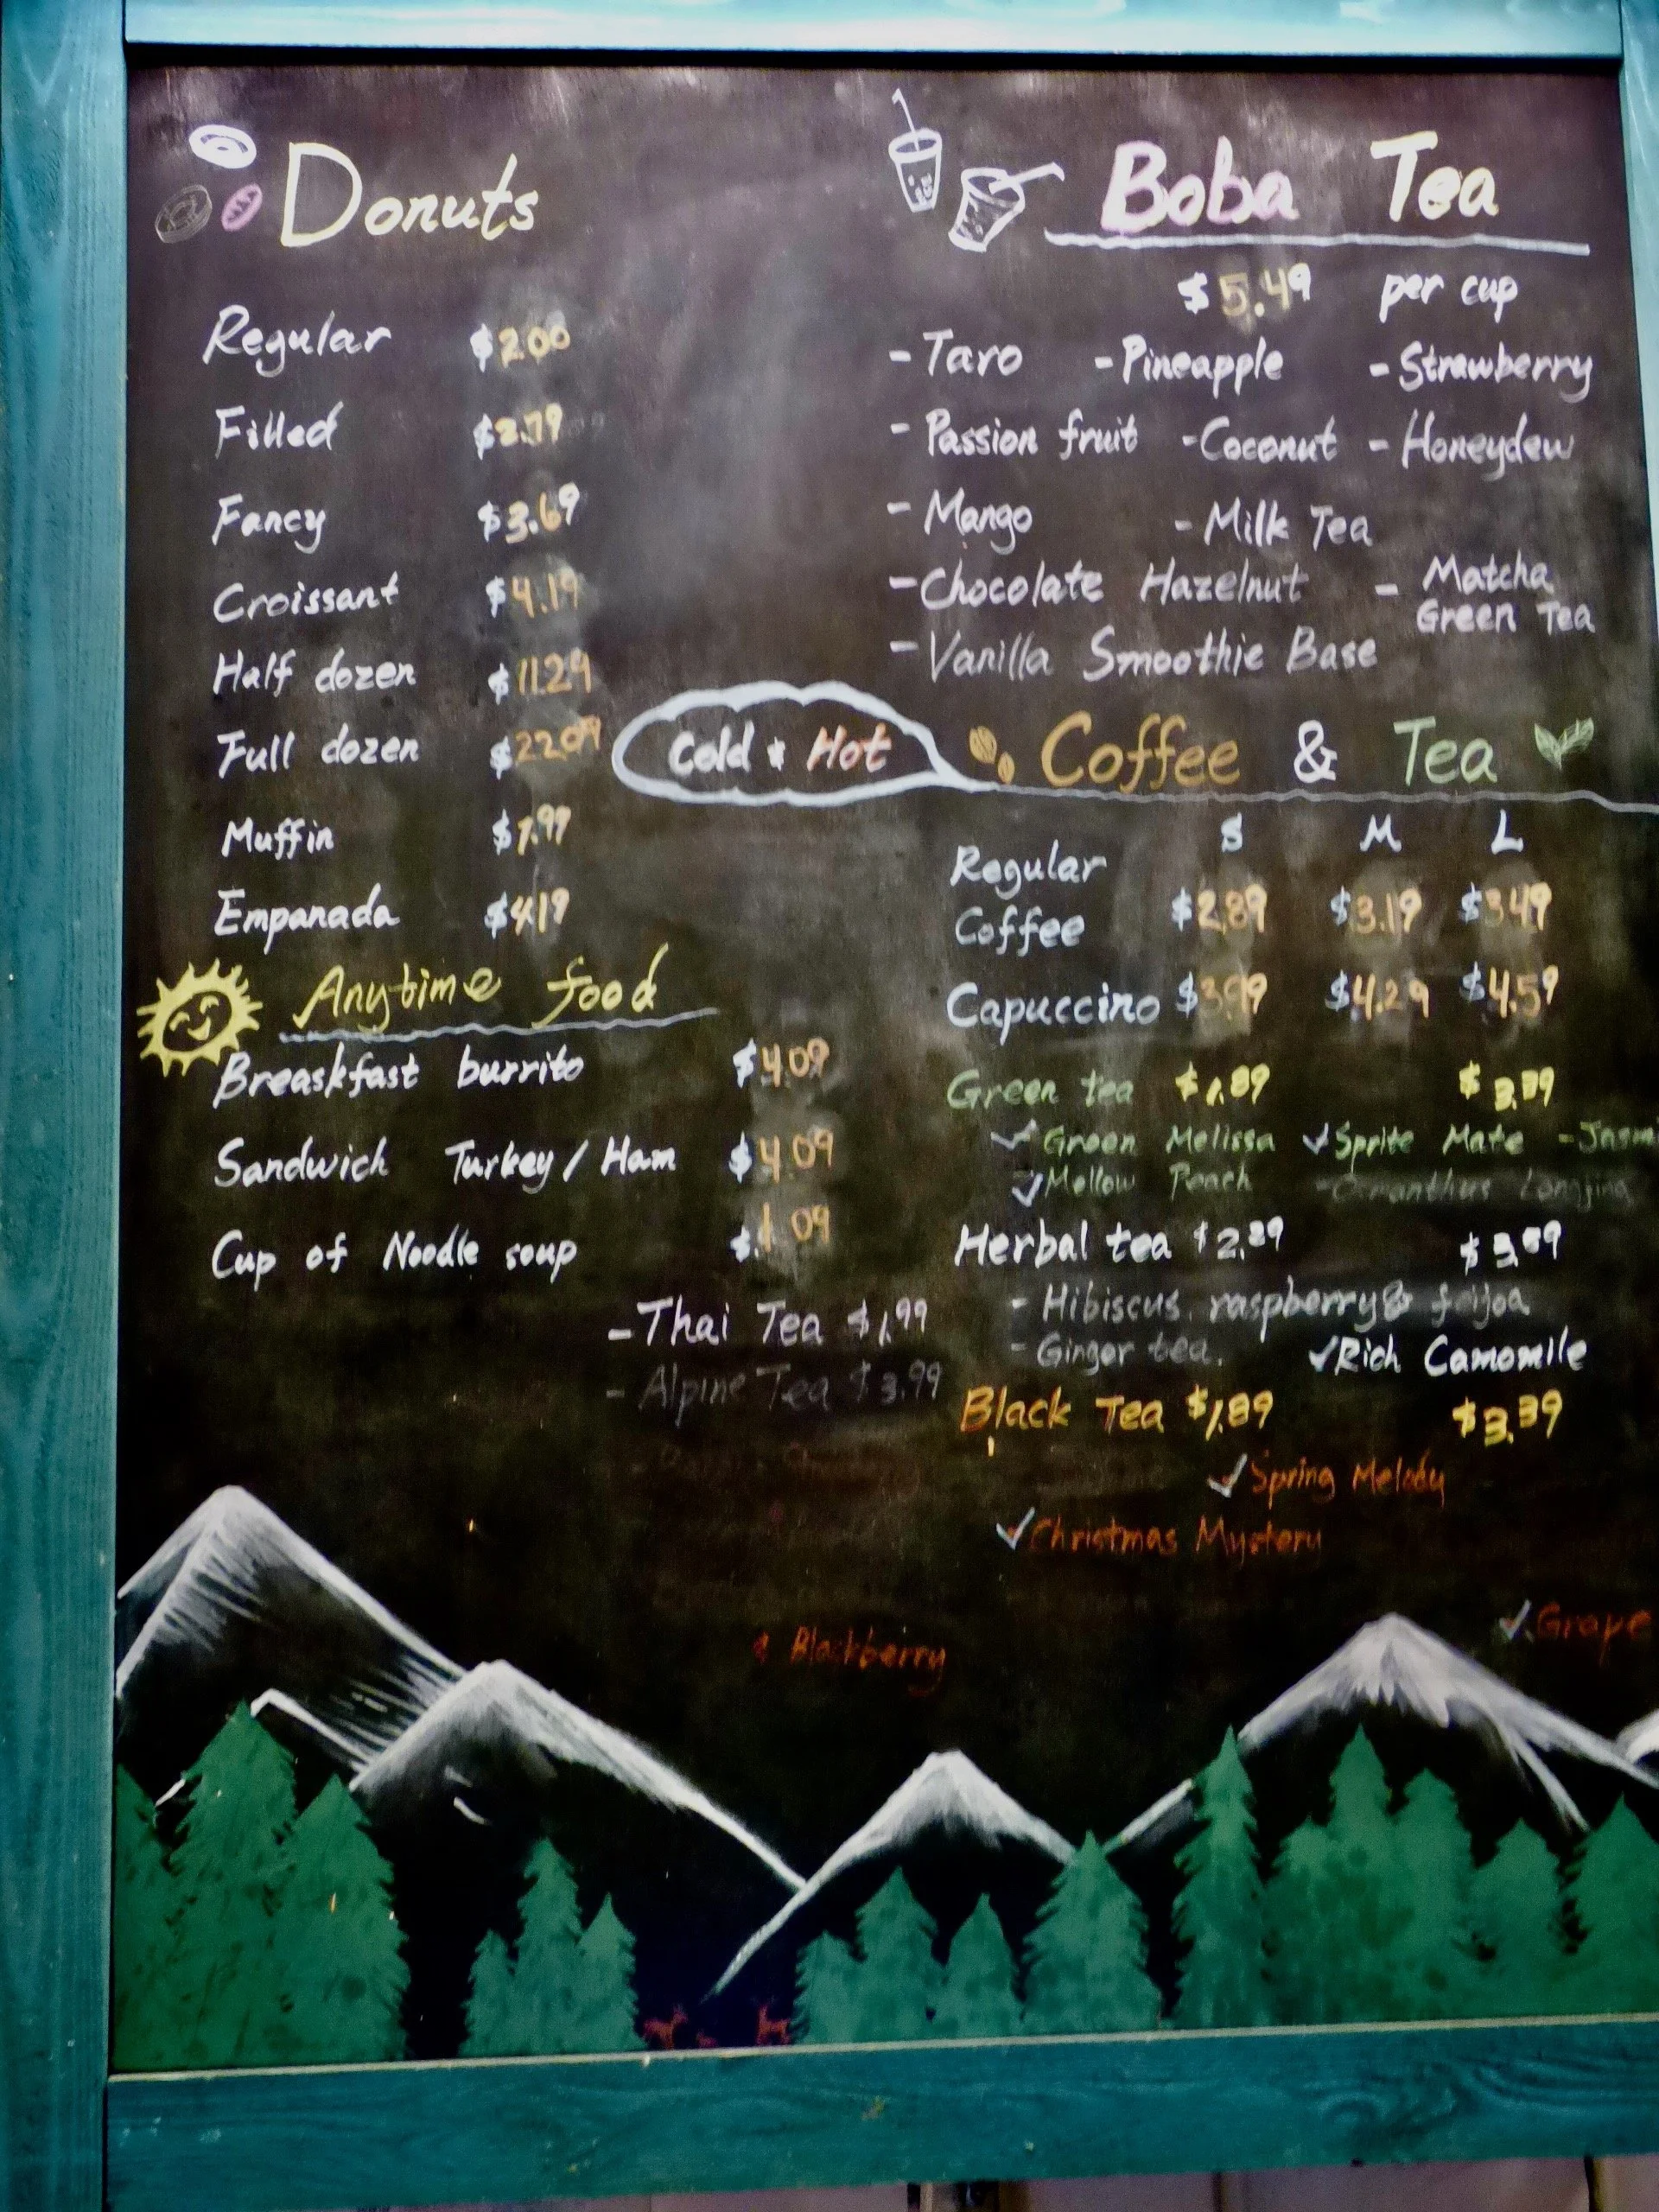 Donuts
Regular $2.00
Filled $2.79
Fancy $3.69
Croissant $4.19
Half dozen $11.29
Full dozen $22.09
Muffin $1.99
Empanada $4.19
Anytime food
Breaskfast burrito $4.09
Sandwich Turkey / Ham $4.09
Cup of Noodle soup
- Thai Tea $1.99
- Alpine Tea $3.99
Boba Tea
$5.49 per cup
- Taro - Pineapple - Strawberry
- Passion fruit - Coconut - Honeydew
- Mango - Milk Tea
- Chocolate Hazelnut - Matcha Green Tea
- Vanilla Smoothie Base
Cold & Hot
Coffee & Tea
S M L
Regular Coffee $2.89 $3.19 $3.49
Capuccino $3.99 $4.29 $4.59
Green tea $1.89 $3.39
✓ Green Melissa ✓ Sprite Mate
✓ Mellow Peach - Osmanthus Longjing
Herbal tea $2.89
- Hibiscus, raspberry & feijoa
- Ginger tea. ✓ Rich Camomile
Black Tea $1.89 $3.39
✓ Spring Melody
✓ Christmas Mystery
✓ Grape
& Blackberry